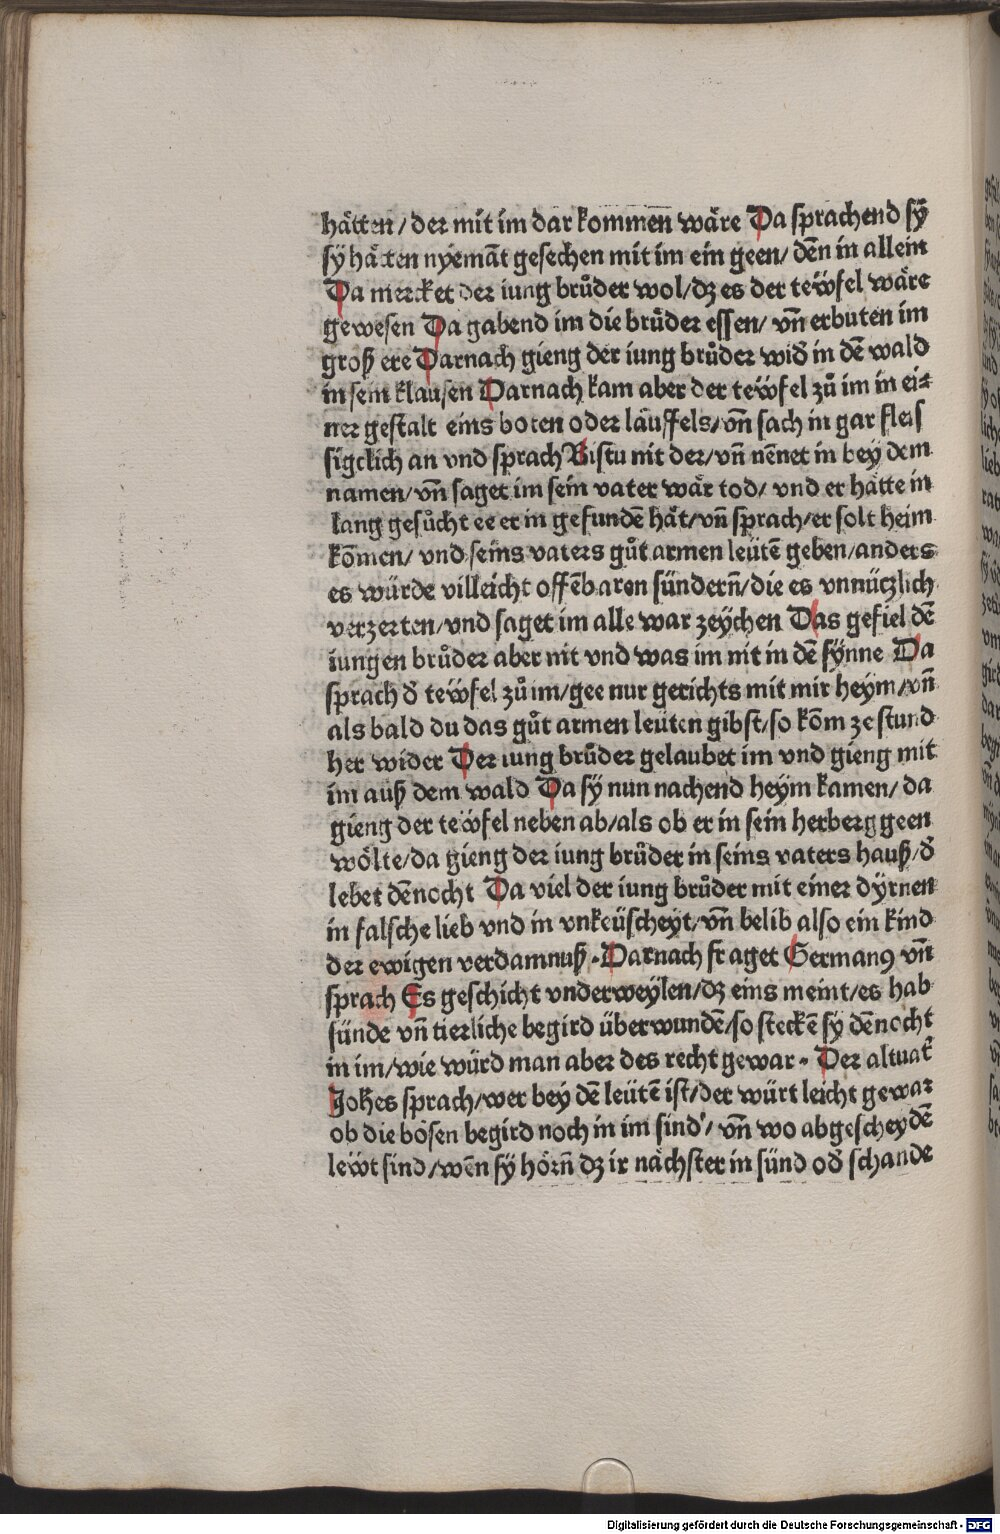 hätten/ der mit im dar kommen wäre Da sprachend sÿ
sÿ hätten nyemāt gesechen mit im ein geen/ dēn in allein
Da mercket der iung brůder wol/dz es der teẅfel wäre
gewesen Da gabend im die brůder essen/ vn̄ erbuten im
groß ere Darnach gieng der iung brůder wid̕ in dē wald
in sein klausen Darnach kam aber der teẅfel zů im in ei⸗
ner gestalt eins boten oder läuffels/vn̄ sach in gar fleis
sigclich an vnd sprach Bistu nit der/vn̄ nēnet in bey dem
namen/vn̄ saget im sein vater wär tod/ vnd er hätte in
lang gesůcht ee er in gefundē hät/vn̄ sprach/er solt heim
kōmen/ vnd seins vaters gůt armen leütē geben/anders
es würde villeicht offēbaren sündern̄/die es vnnützlich
verzerten/vnd saget im alle war zeychen Das gefiel dē
iungen brůder aber nit vnd was im nit in dē sÿnne Da
sprach d̕ teẅfel zů im/gee nur gerichts mit mir heym/vn̄
als bald du das gůt armen leüten gibst/so kōm ze stund
her wider Der iung brůder gelaubet im vnd gieng mit
im auß dem wald Da sÿ nun nachend heÿm kamen/ da
gieng der teẅfel neben ab/als ob er in sein herberg geen
wölte/da gieng der iung brůder in seins vaters hauß/d̕
lebet dēnocht Da viel der iung brůder mit einer dÿrnen
in falsche lieb vnd in vnkeüscheyt/vn̄ belib also ein kind
der ewigen verdamnuß ⸗ Darnach fraget Germanꝰ vn̄
sprach Es geschicht vnderweÿlen/dz eins meint/es hab
sünde vn̄ tierliche begird überwundē/so steckē sÿ dēnocht
in im/wie würd man aber des recht gewar ⸗ Der altuat̕
Joh̄es sprach/wer bey dē leütē ist/der würt leicht gewar
ob die bösen begird noch in im sind'/ vn̄ wo abgescheydē
lewt sind/wēn sÿ hörn̄ dz ir nächster in sünd od̕ schande
Digitalisierung gefördert durch die Deutsche Forschungsgemeinschaft - DFG